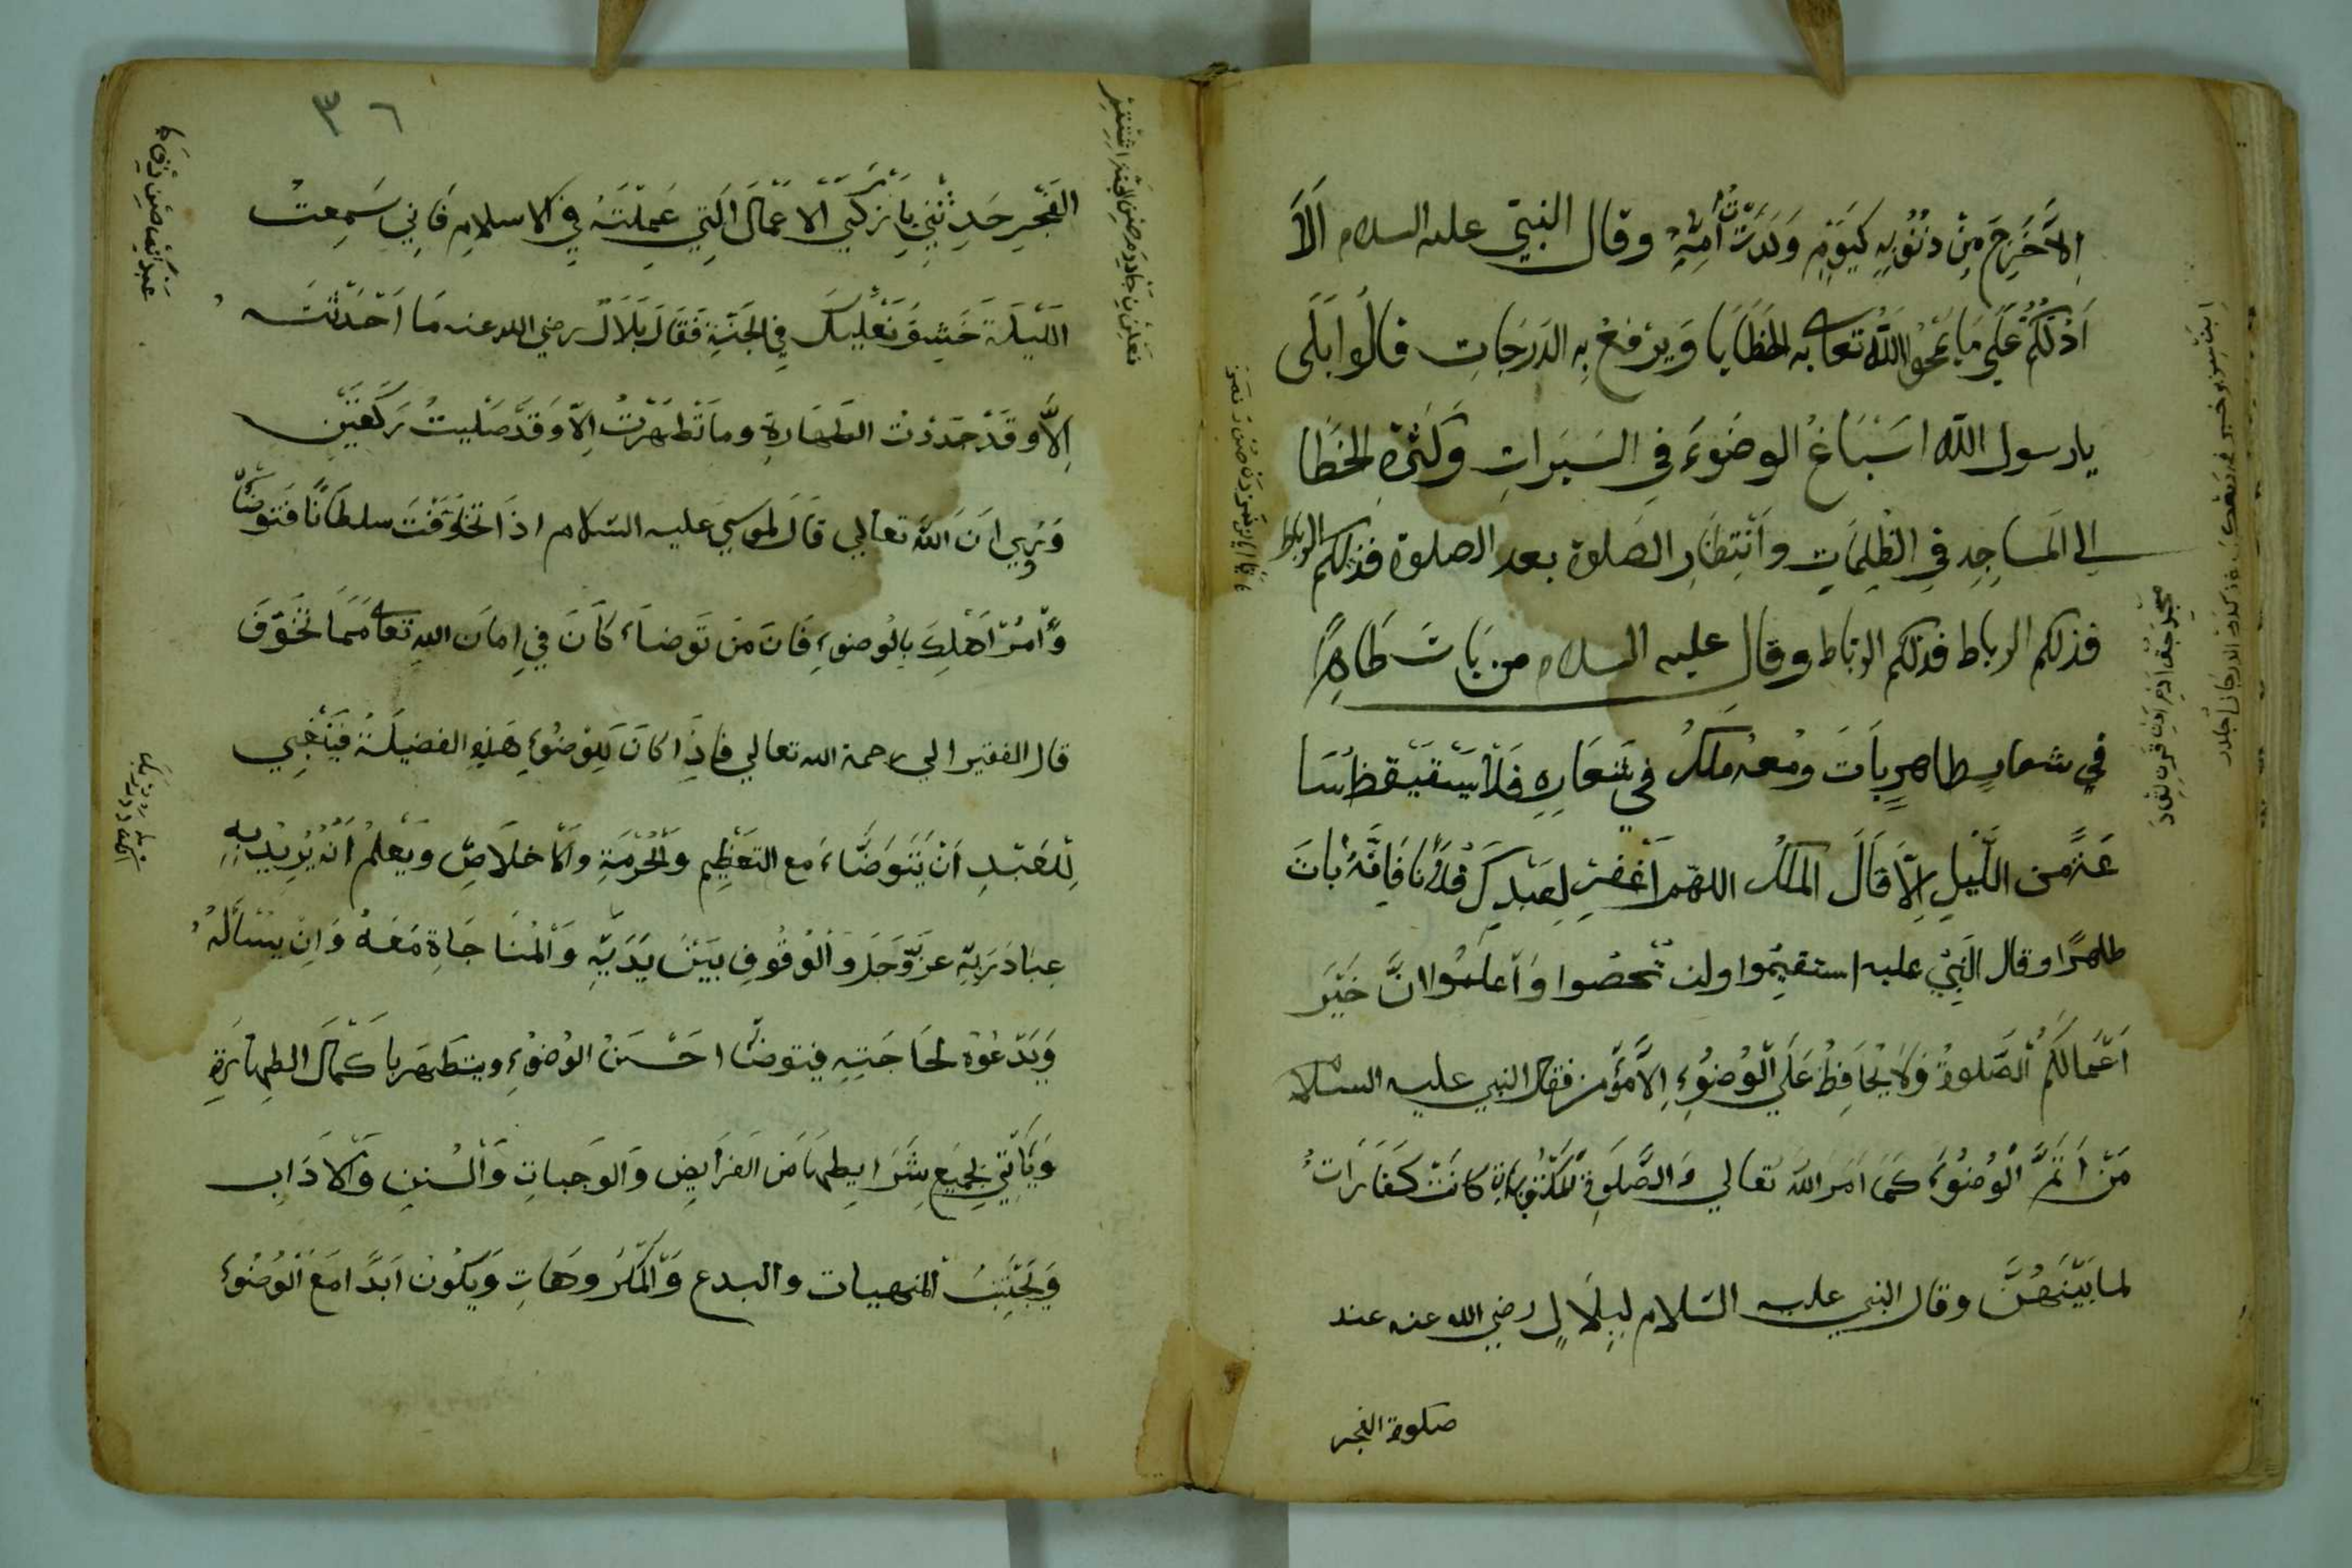 اِلاَّ خَرِجَ مِنْ ذُنُوُبِهِ كَيَوَمٍ وَلَدَتْ أُمِّهِ وقال النبيّ عليه السلام اَلاَ
اَدُلُّكُمْ عَلَي مَا يَمْحُوا اللّٰهُ تعالى به الخَطَايا وَيرْفَعُ بِهِ الدَرَجَاتِ قالُوا بَلَى
يارسول اللّه اسَبْاغُ الوضوَءَ في السَبَرَاتِ وَكَثْرة الخَطَا
الي المَساجِدِ في الظُلِمَاتِ وانتِظَارِ الصَلوة بعد الصلوة فذلكم الرباط
فذلكم الرباط فذلكم الرباط وقال عليه السلام من بَاتَ طَاهِرًا
في شعارٍ طاهرٍ بَاتَ ومعه مَلَكُ في شَعَارِهِ فَلاَ سَتَيقظ سَا
عَةً من اللَّيلِ اِلاَّ قَالَ المَلَكُ اللهم اغفر لِعَبْدِكَ فُلَانًا فَاِنَّهُ بَاتَ
طاهرًا وقال النَبِيُ عليه استقيمُوا ولن تحصُوا وَاعلمُوا انَّ خَيْرَ
اَعْمَالَكُمْ الصَّلوةُ وَلَا يُحَافِظُ عَلَي الْوُضوُءِ اِلاَّ مُؤْمن فقال النبي عليه السلام
مَنْ اَتَمَّ الْوُضوُءَ كَمَا اَمَرَ اللّٰهُ تعَالي وَالصَّلَوةِ المكتُوبَاتِ كانَتْ كَفَارَاتُ
لما بَيْنَهُنَّ وقال النبي عليه السّلام لبِلَالٍ رضي الله عنه عند
صلوة الفجر
٣٦
الفَجْرِ حَدِثْنِي بِاَزْكَي الاَعْمَال الَتِي عَمِلْتَهُ في الاسلامِ فَاِنِي سَمِعتُ
اللَيْلَة خَشِفَ نَعْلَيكَ فِي الجَنَّةِ فَقَالَ بِلَالْ رضي الله عنه مَا اَحْدَثْتُ
اِلاَّ وقَدْ جَدَدْتُ الطَهَارةِ وما تَطَهَرْتُ اِلاَّ وَقَدْ صَلَيتُ رَكْعَتَيْن
وَرُوِي اَنَ اللّٰهَ تعالي قَالَ لموسي عليه السّلام اذَا تخَوَفْتَ سلطَانًا فَتَوضَّأ
وَاْمُرْ اَهْلكَ بِالُوضوءِ فَانَ مَنْ تَوَضاءَ كَانَ فِي اِمَان اللهِ تعالى مِمَّا تخَوَّفَ
قال الفقير الي رحمة الله تعالي فاِذَا كانَ لِلِوُضوُءِ هَذِهِ الفضيلَةُ فَيَنْبَغِي
لِلْعَبْدِ اَنْ يَتَوَضَّاءَ مَع التَعظِيم وَالحُرْمَةِ وَالْاخلاَصِ وَيَعْلَمُ اَنَهُ يُرِيدُ بِهِ
عِبَادَةَ رَبِّهِ عزَّوَجَلَ وَالْوُقُوفِ بَيْنَ يَدَيْهِ وَالْمُنَا جَاةِ مَعَهُ وَانِ يَسْأَلَهُ
وَيَدْعُوهُ لحَاجَتِهِ فيتوضّأ احْسَنُ الوُضوُءِ ويتَطَهر باَكْمَال الطَهارَةِ
وَيَأْتِي بجمِيعِ شَرَايطِهَا مِنَ الفَرَايض وَالوَجبات وَالسُننِ وَالاَدَابِ
وَيَجْتَنِبُ المنهيات والبدع وَالمَكرُوهَاتِ وَيَكُونُ اَبدًا مَعَ الوُضوُءِ